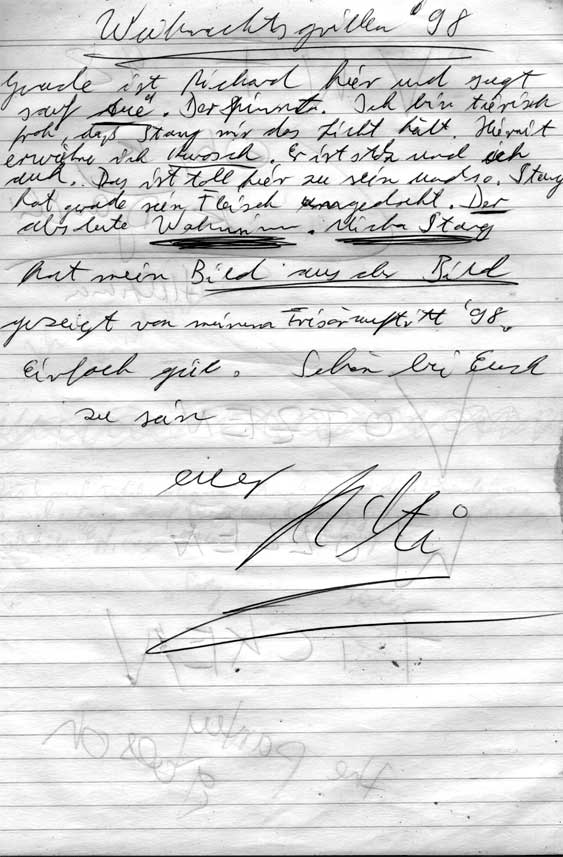 Weihnachtsgrillen '98
Grade ist Richard hier und sagt
sauf Der spinnt. Ich bin tierisch
froh daß Stang mir das Licht hält. Hiermit
erwähne ich Kwosch. Er ist stolz und ich
auch. Das ist toll hier zu sein und so. Stang
hat grade sein Fleisch umgedreht. Der
absolute Wahnsinn. Micha Stang
hat mein Bild aus der Bild
gezeigt von meinem Frisörauftritt '98.
Einfach geil. Schön bei Euch
zu sein
euer